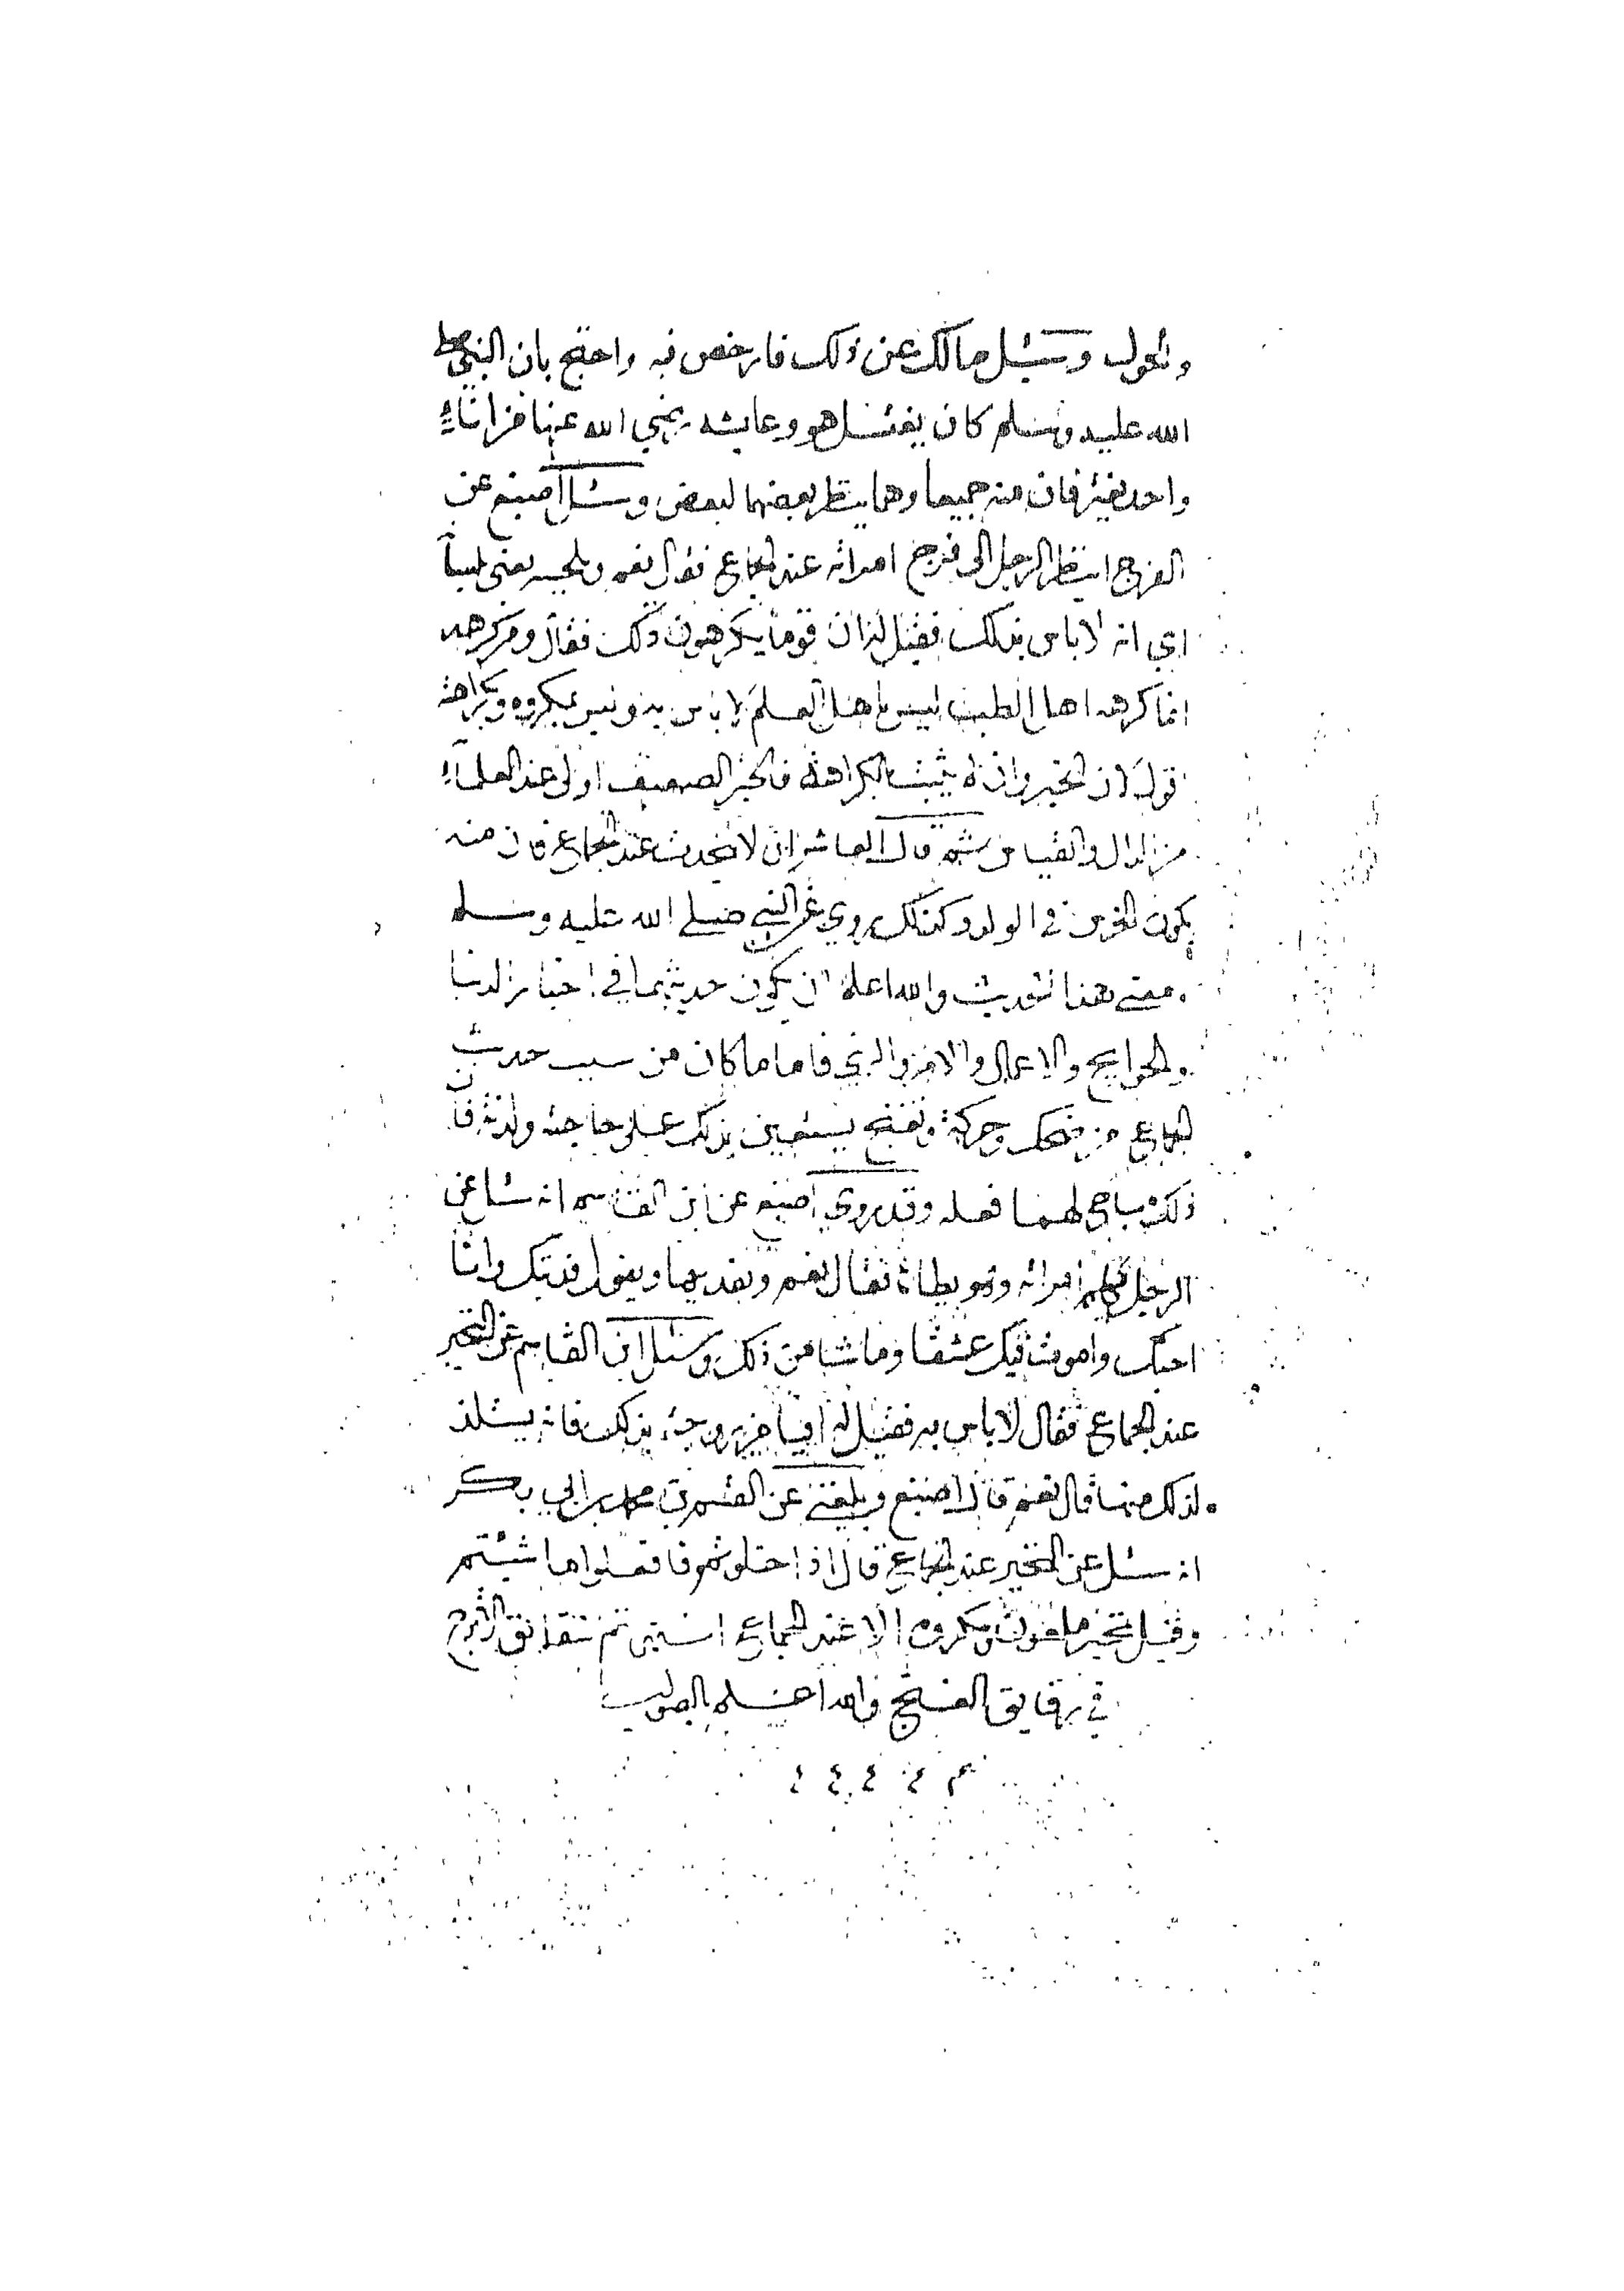 وسئل مالك عن ذلك فارخص فيه واحتج بان النبي صلى
الله عليه وسلم كان يغتسل هو وعايشه رضي الله عنها من اناء
واحد يغترفان منه جميعا وهما ينظر بعضهما لبعض وسئل اصبغ عن
الفرج اينظر الرجل الى فرج امراته عند الجماع فقال نعم ويلحسه يعني
اي انه لا باس بذلك فقيل له ان قوما يكرهون ذلك فقال ومن كرهه
انما كرهه اهل الطب ليس اهل العلم لا باس به وليس بمكروه وبكراهته
قول لان الخبر وان لم يثبت بالكراهة فالخبر الضعيف اولى عند العلماء
من الراي والقياس قال العاشر ان لا يتحدث عند الجماع فان منه
يكون الخرس في الولد وكذلك روي عن النبي صلى الله عليه وسلم
معنى هذا الحديث والله اعلم ان يكون حديثهما في اخبار الدنيا
والحوايج والاعمال والامر والنهي فاما ما كان من سبب حديث
الجماع من ضحك وحركة يستعين بذلك على حاجته ولذته فان
ذلك مباح لهما فعله وقد روي اصبغ عن ابن القاسم انه سئل عن
الرجل يكلم امراته وهو يطاها فقال نعم ويفديها ويقول فديتك وانا
احبك واموت فيك عشقا وما شا من ذلك وسئل ابن القاسم عن النخير
عند الجماع فقال لا باس به فقيل له زوجته بذلك فانه يستلذ
لذلك منها قال نعم قال اصبغ وبلغني عن القسم بن محمد بن ابي بكر
انه سئل عن النخير عند الجماع قال اذا خلوتم فافعلوا ما شيتم
وقيل النخير ومكروه الا عند الجماع انتهى شقايق الاترج
في رقايق الغنج والله اعلم بالصواب